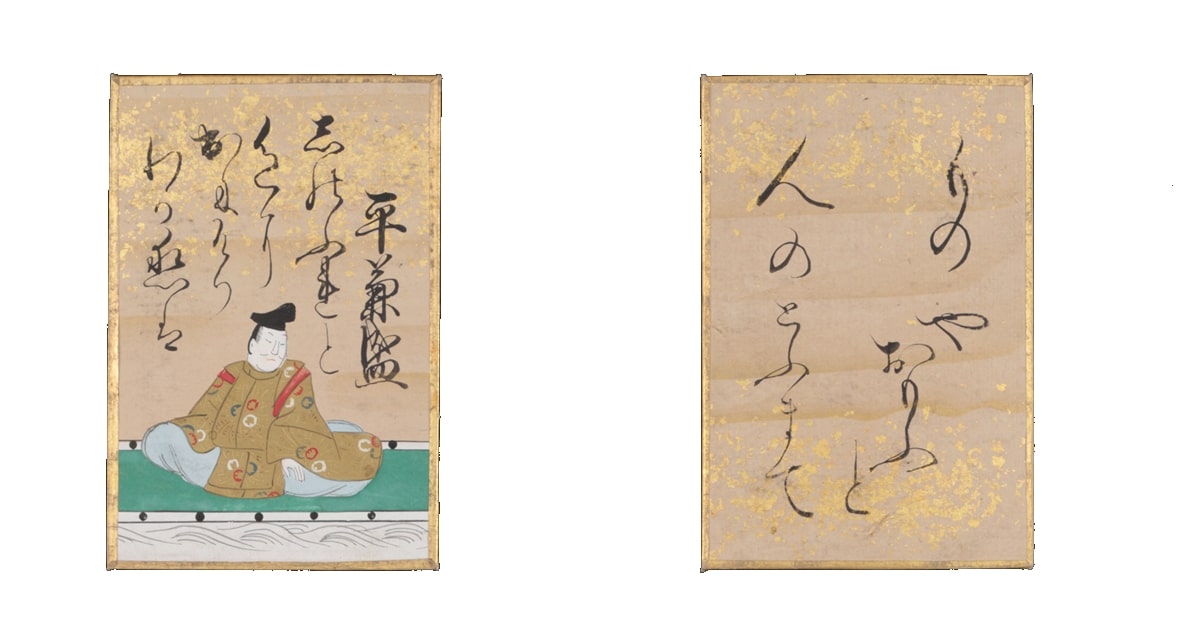 平兼盛
志のふれと
色に
出にけり
わか恋は
ものや
おもふ
と
人のとふまて